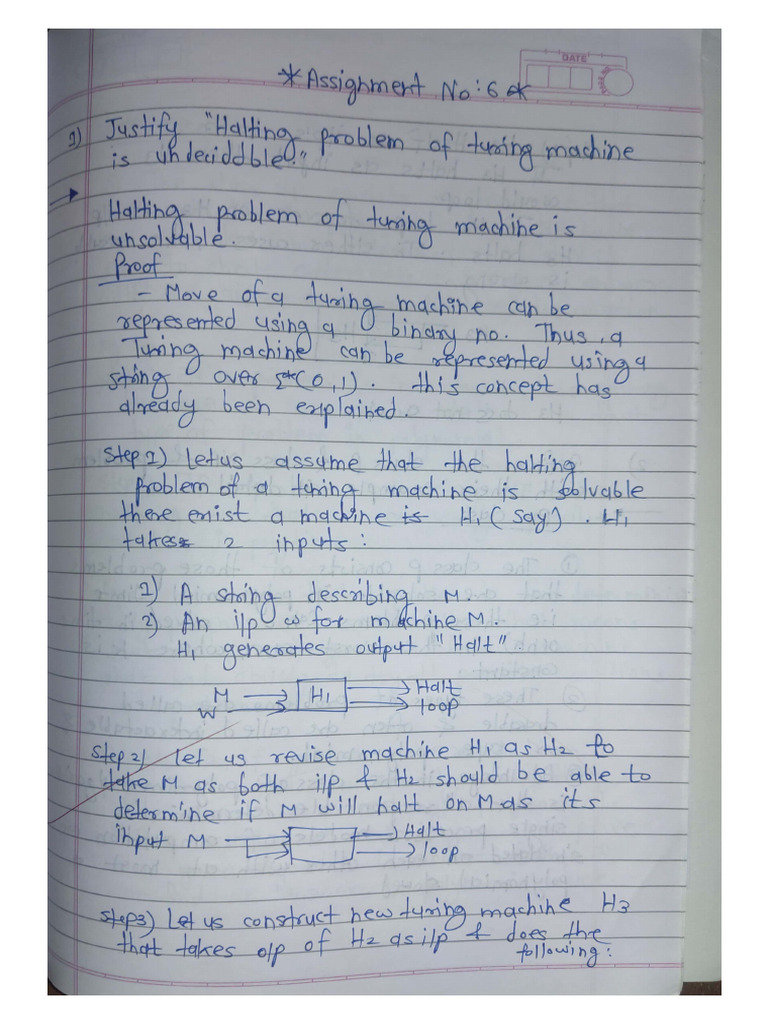 DATE
* Assignment No : 6 *
1) Justify "Halting problem of turing machine
is undeciddble."
Halting problem of turing machine is
unsolvable.
Proof
- Move of a turing machine can be
represented using a binary no. Thus, a
Turing machine can be represented using a
string over Σ*(0,1). this concept has
already been explained.
Step 1) Let us assume that the halting
problem of a turing machine is solvable
there exist a machine is H1 (say). H1
takes 2 inputs :
1) A string describing M.
2) An i/p w for machine M.
H1 generates output "Halt"
M H1 Halt
W loop
Step 2) let us revise machine H1 as H2 to
take M as both i/p & H2 should be able to
determine if M will halt on M as its
input M Halt
loop
Step3) Let us construct new turing machine H3
that takes o/p of H2 as i/p & does the
following: